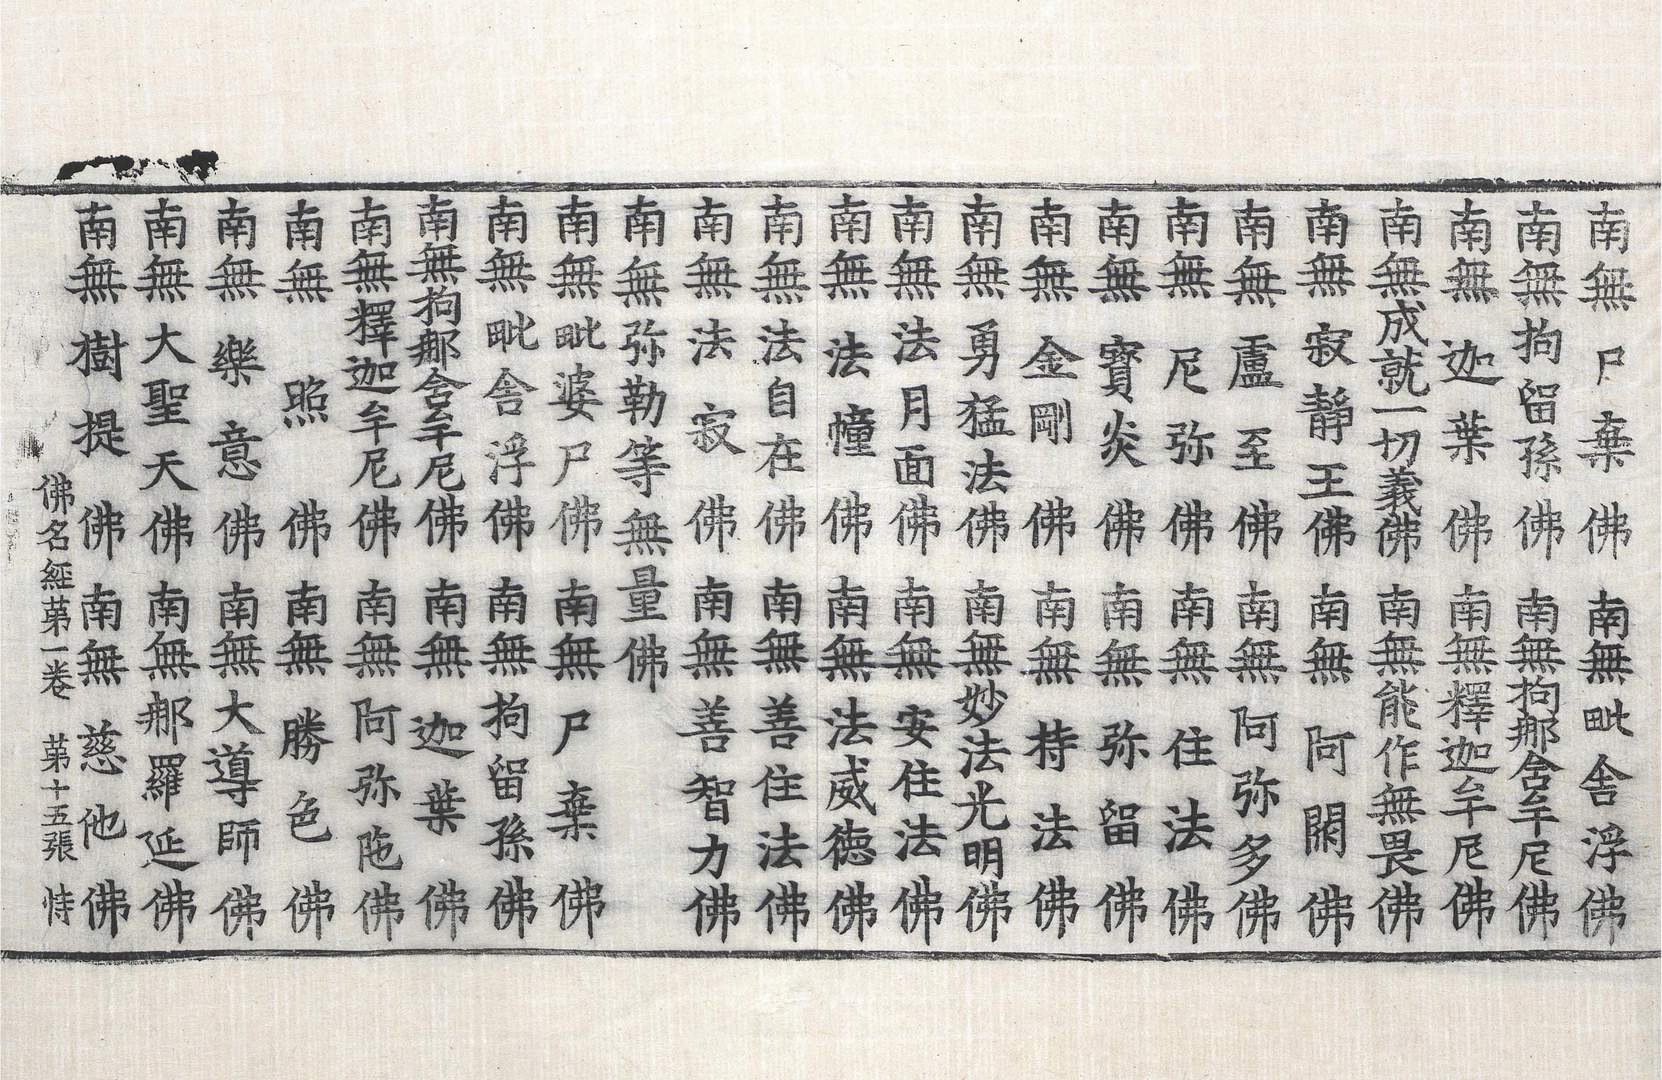 南無尸棄佛南無毗舎浮佛
南無拘留孫佛南無拘那含牟尼佛
南無迦葉佛南無釋迦牟尼佛
南無成就一切義佛南無能作無畏佛
南無寂靜王佛南無阿閦佛
南無盧至佛南無阿弥多佛
南無尼弥佛南無住法佛
南無寶炎佛南無弥留佛
南無金剛佛南無持法佛
南無勇猛法佛南無妙法光明佛
南無法月面佛南無安住法佛
南無法幢佛南無法威德佛
南無法自在佛南無善住法佛
南無法寂佛南無善智力佛
南無弥勒等無量佛
南無毗婆尸佛南無尸棄佛
南無毗舎浮佛南無拘留孫佛
南無拘那含牟尼佛南無迦葉佛
南無釋迦牟尼佛南無阿弥陁佛
南無照佛南無勝色佛
南無樂意佛南無大導師佛
南無大聖天佛南無那羅延佛
南無樹提佛南無慈他佛
佛名經第一卷 第十五張 恃